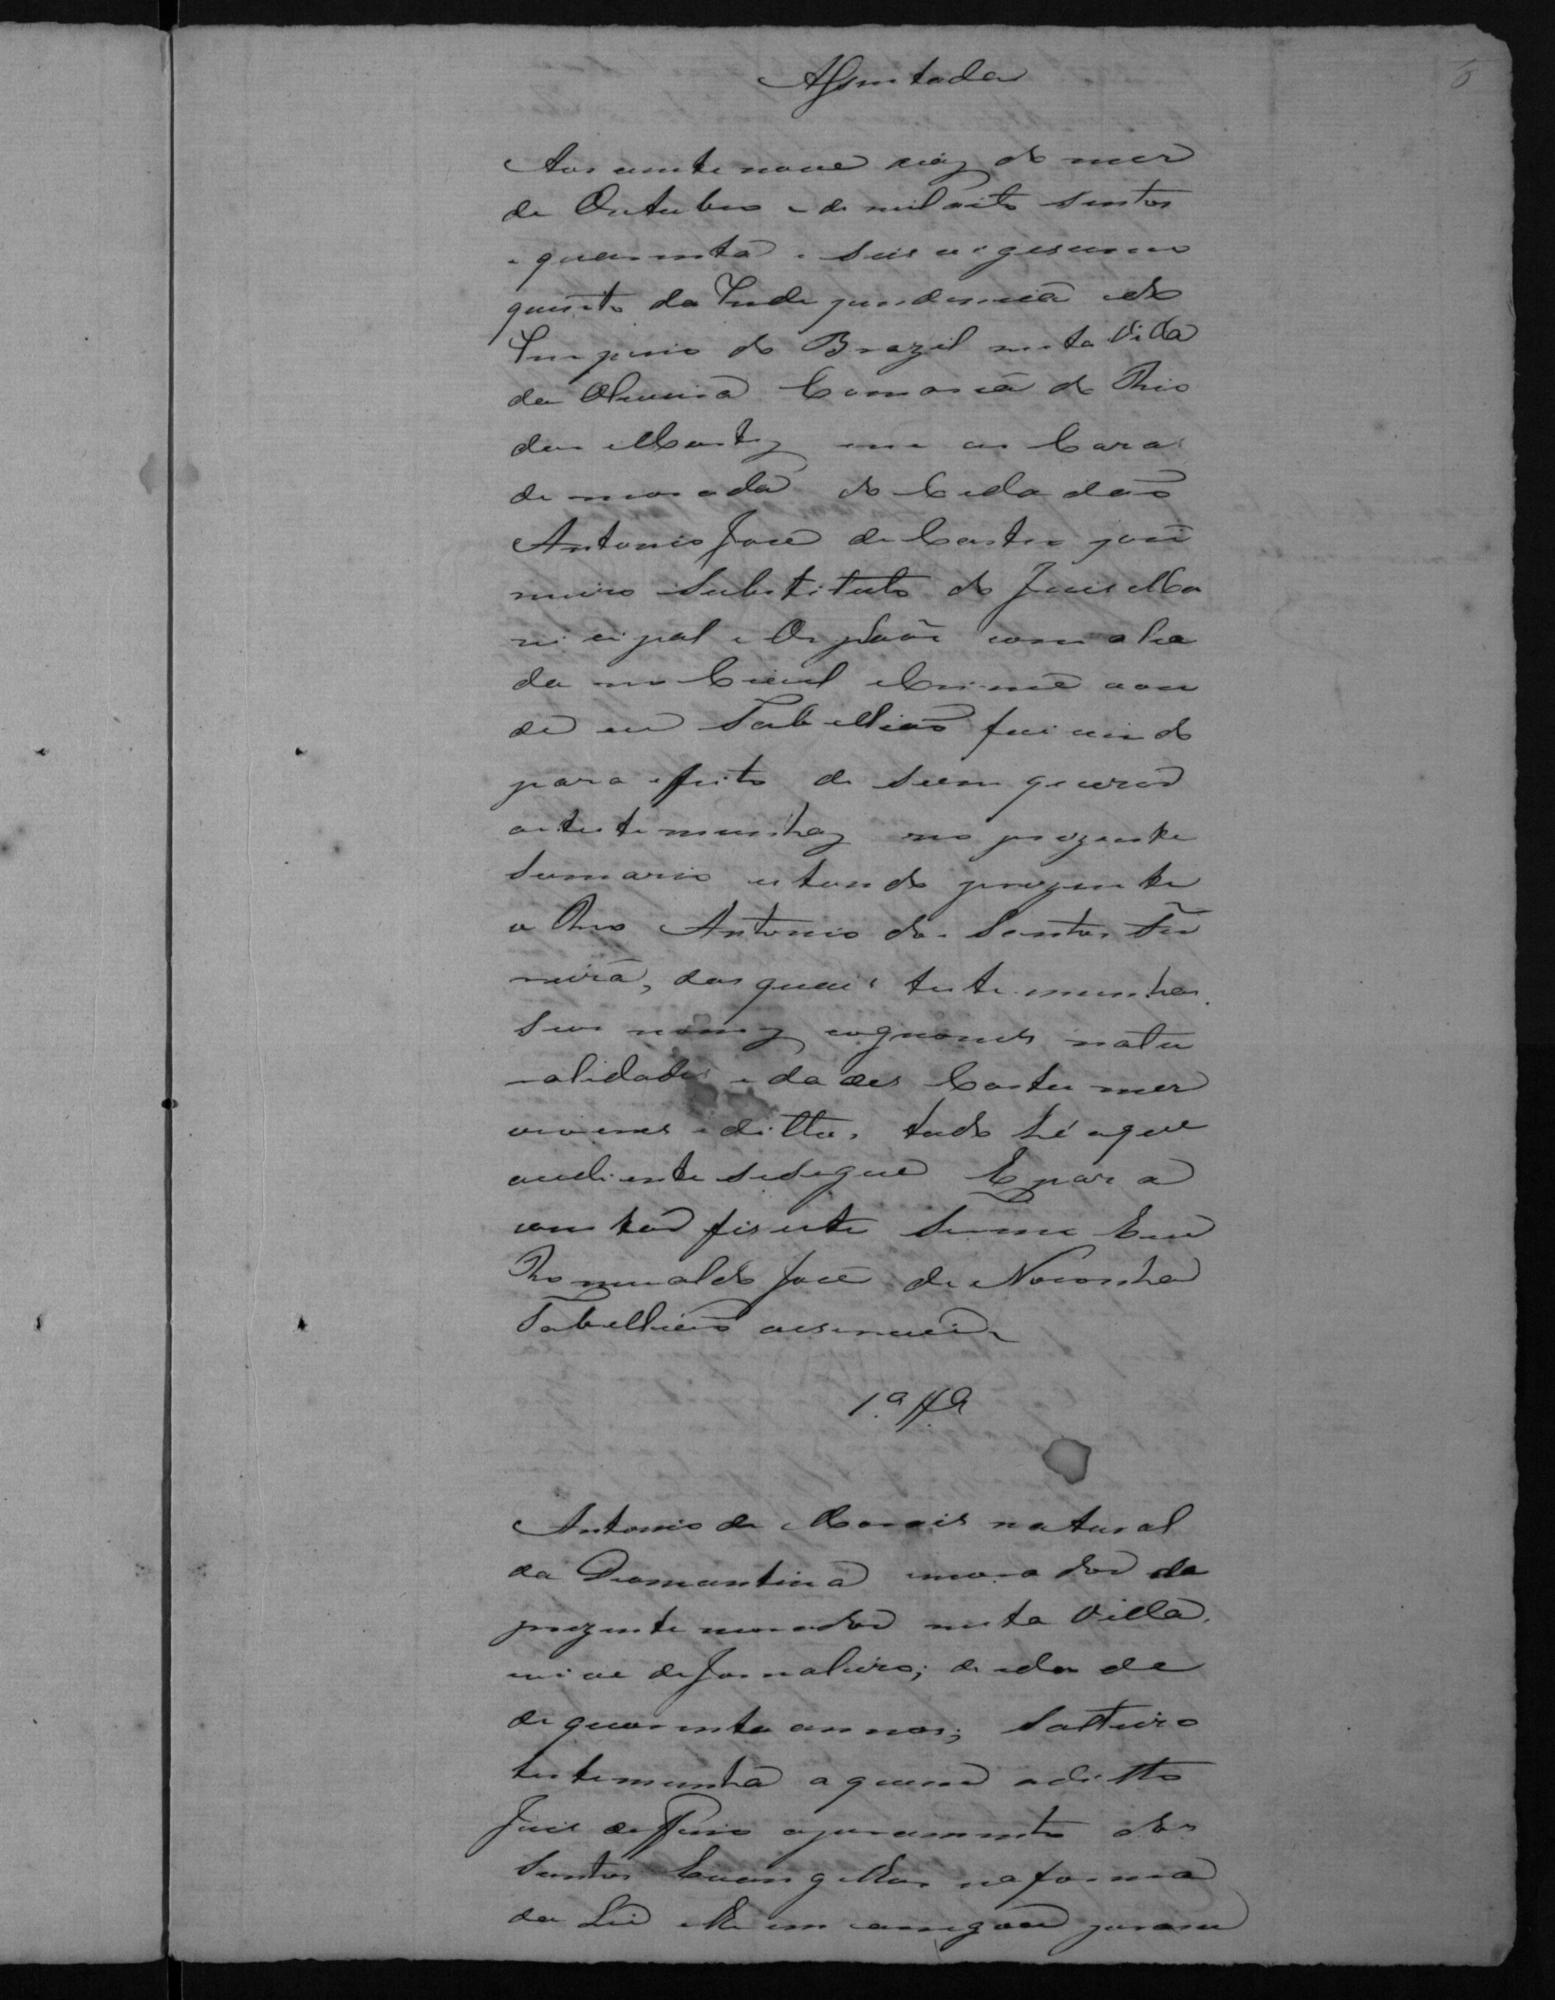 Assentada
Aos vinte nove diaz do mes
de Outubro de mil oito sentos
e quarenta e seis vigesimo
quinto da Independencia e do
Imperio do Brazil nesta Villa
da Oliveira Comarca do Rio
das Mortez em as Cazas
de morada do Cidadão
Antonio José de Castro pri
meiro Substituto do Juis Mu
nicipal e Orphãos com alsa
da no Civel e Crime aon
de eu Tabellião fui vindo
para effeito de serem queridas
as testemunhaz no prezente
Sumario estando prezente
o Reo Antonio dos Santos
das quais testemunhas
seos nomez cognomes natu
ralidades idades Costumes
viveres e dittos, tudo hé o que
aodiente se segue E para
constar fis este termo Eu
Romualdo José de Noronha
Tabellião escrevi
1.ª Tª
Antonio de Morais natural
da Diamantina morador de
prezente morador nesta Villa,
vive de Jornaleiro; de idade
de quarenta annos; Solteiro
testemunha a quem o ditto
Juis deferio o juramento dos
Santos Evangelhos na forma
da Lei e lhe encarregou